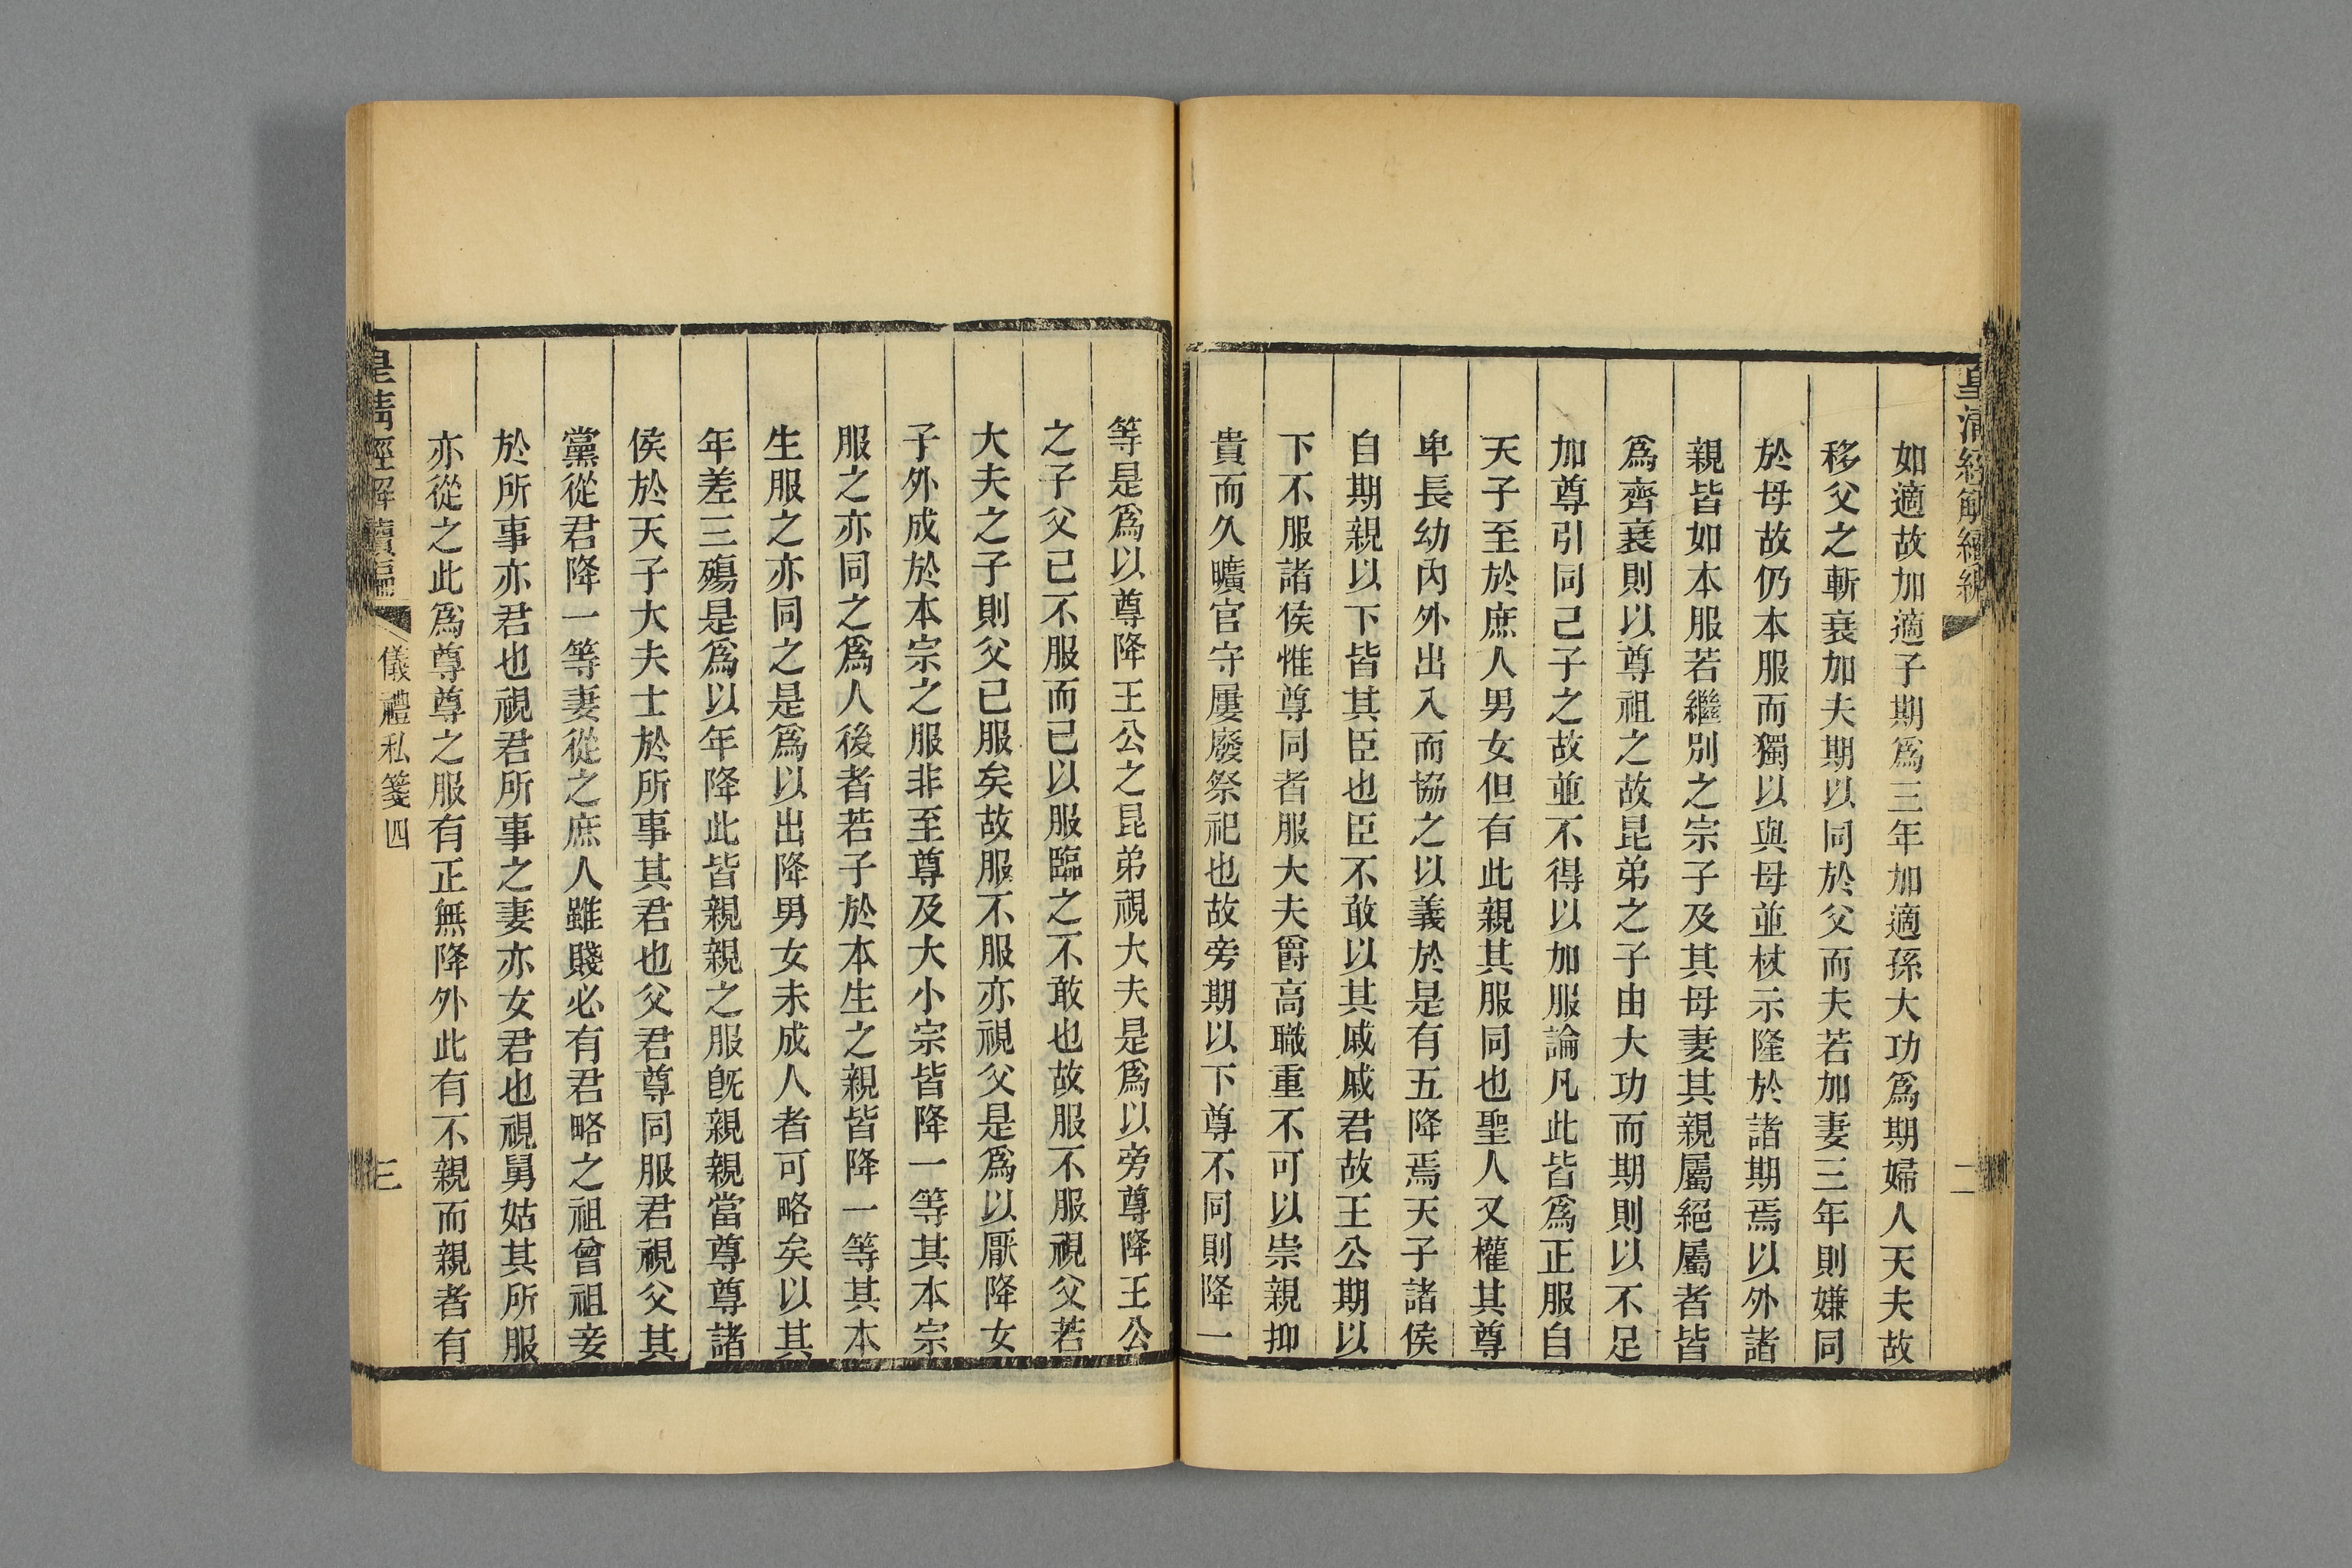 皇清經解續編
二
如適故加適子期爲三年加適孫大功爲期婦人天夫故
移父之斬衰加夫期以同於父而夫若加妻三年則嫌同
於母故仍本服而獨以與母並杖示隆於諸期焉以外諸
親皆如本服若繼別之宗子及其母妻其親屬絕屬者皆
爲齊衰則以尊祖之故昆弟之子由大功而期則以不足
加尊引同己子之故並不得以加服論凡此皆爲正服自
天子至於庶人男女但有此親其服同也聖人又權其尊
卑長幼內外出入而協之以義於是有五降焉天子諸侯
自期親以下皆其臣也臣不敢以其戚戚君故王公期以
下不服諸侯惟尊同者服大夫爵高職重不可以崇親抑
貴而久曠官守屢廢祭祀也故旁期以下尊不同則降一
等是爲以尊降王公之昆弟視大夫是爲以旁尊降王公
之子父已不服而已以服臨之不敢也故服不服視父若
大夫之子則父已服矣故服不服亦視父是爲以厭降女
子外成於本宗之服非至尊及大小宗皆降一等其本宗
服之亦同之爲人後者若子於本生之親皆降一等其本
生服之亦同之是爲以出降男女未成人者可略矣以其
年差三殤是爲以年降此皆親親之服旣親親當尊尊諸
侯於天子大夫士於所事其君也父君尊同服君視父其
黨從君降一等妻從之庶人雖賤必有君略之祖曾祖妾
於所事亦君也視君所事之妻亦女君也視舅姑其所服
亦從之此爲尊尊之服有正無降外此有不親而親者有
皇清經解續編
儀禮私箋四
三